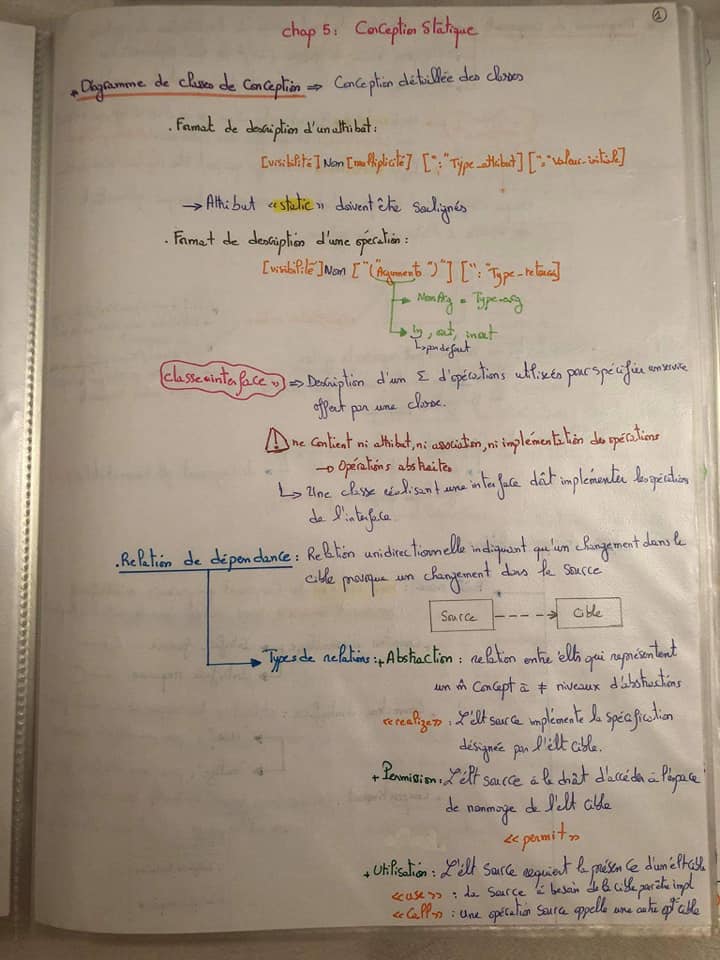 1
chap 5: Conception Statique
* Diagramme de classes de Conception ⇒ Conception détaillée des classes
. Format de description d'un attribut:
[visibilité] Nom [multiplicité] [":" Type_attribut] ["=" valeur_initiale]
→ Attribut «static» doivent être soulignés
. Format de description d'une opération:
[visibilité] Nom ["("Arguments")"] [":" Type_retour]
NomArg = Type-arg
in, out, inout
↳ par défaut
classe «interface» ⇒ Description d'un Σ d'opérations utilisées pour spécifier un service
offert par une classe.
⚠ ne contient ni attribut, ni association, ni implémentation des opérations
→ Opérations abstraites
↳ Une classe réalisant une interface doit implémenter les opérations
de l'interface
. Relation de dépendance: Relation unidirectionnelle indiquant qu'un changement dans le
cible provoque un changement dans la source
Source - - - → Cible
Types de relations: + Abstraction : relation entre élts qui représentent
un m̂ Concept à ≠ niveaux d'abstractions
«realize»: L'élt source implémente la spécification
désignée par l'élt cible.
+ Permission: L'élt source à le droit d'accéder à l'espace
de nommage de l'élt cible
«permit»
+ Utilisation: L'élt source requiert la présence d'un élt cible
«use» : La source à besoin de la cible par être impl
«Call» : une opération source appelle une autre opt° cible